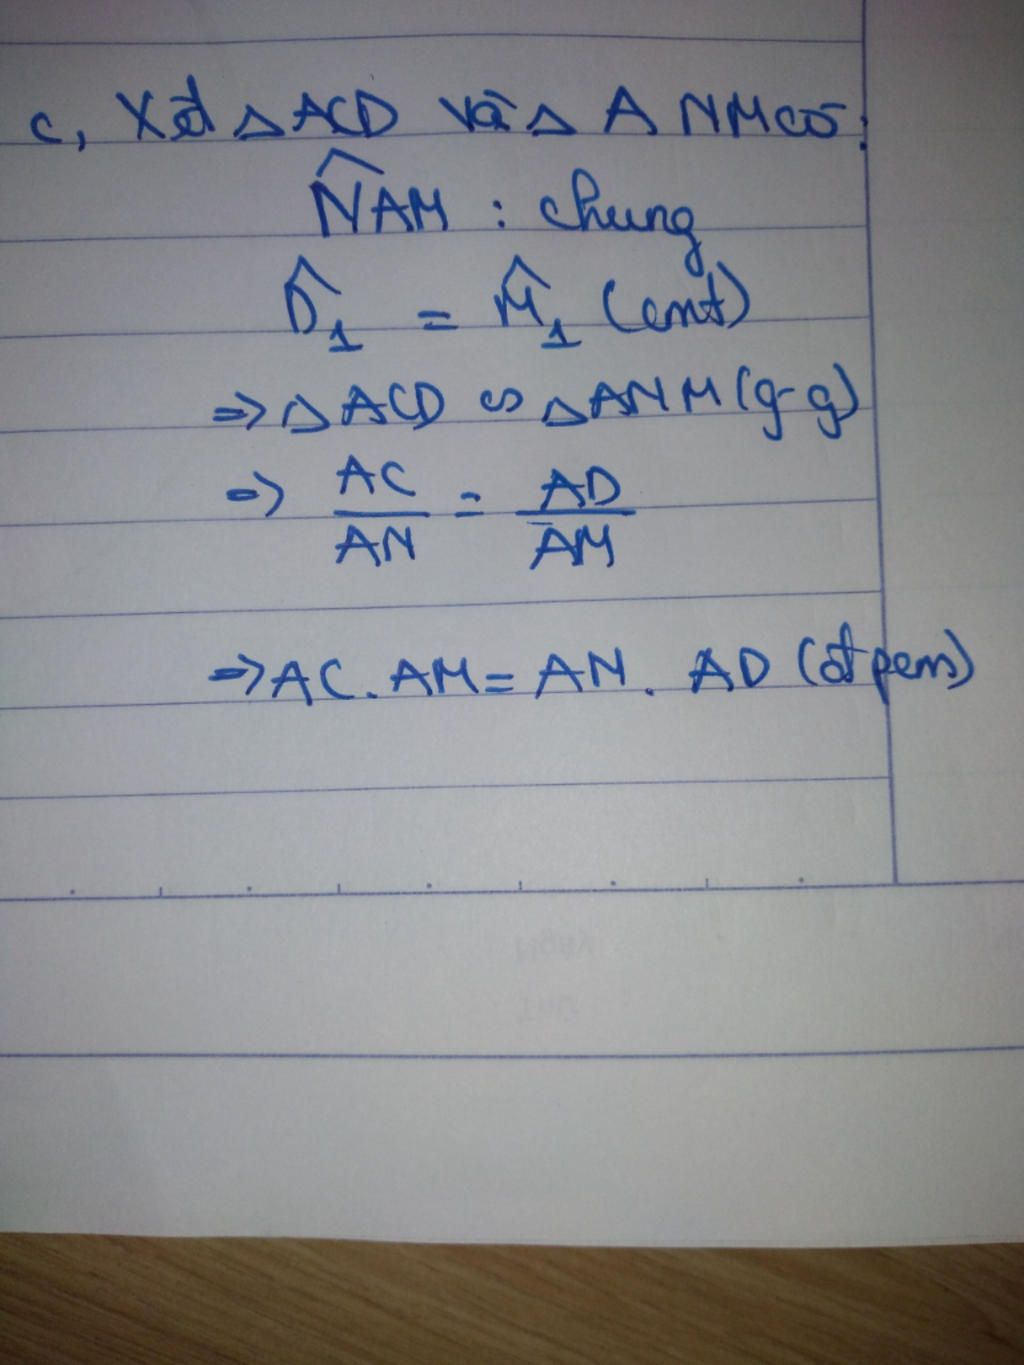 c, Xét △ ACD và △ ANM có:
N̂AM : chung
D̂₁ = M̂₁ (cmt)
=> △ ACD ∽ △ ANM (g-g)
=> AC/AN = AD/AM
=> AC . AM = AN . AD (đtpcm)